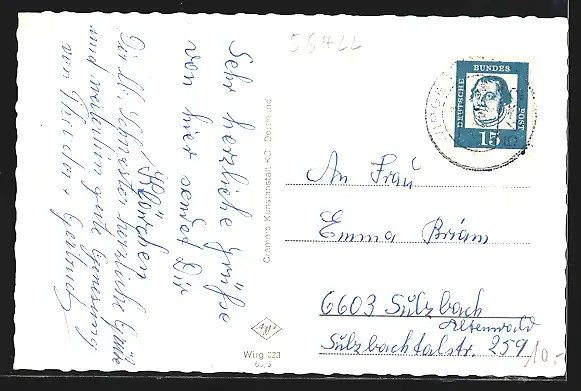 56466
Sehr herzliche Grüße
von hier sendet Dir
Klärchen
Dir lb. Schwester herzliche Grüße
und weiterhin gute Genesung
von Theodor + Gertrud
Cramers Kunstanstalt KG Dortmund
Wirg 023
DEUTSCHE
BUNDES
POST
15
An Frau
Emma Briam
6603 Sulzbach
Altenwald
Sulzbachtalstr. 259
10.-